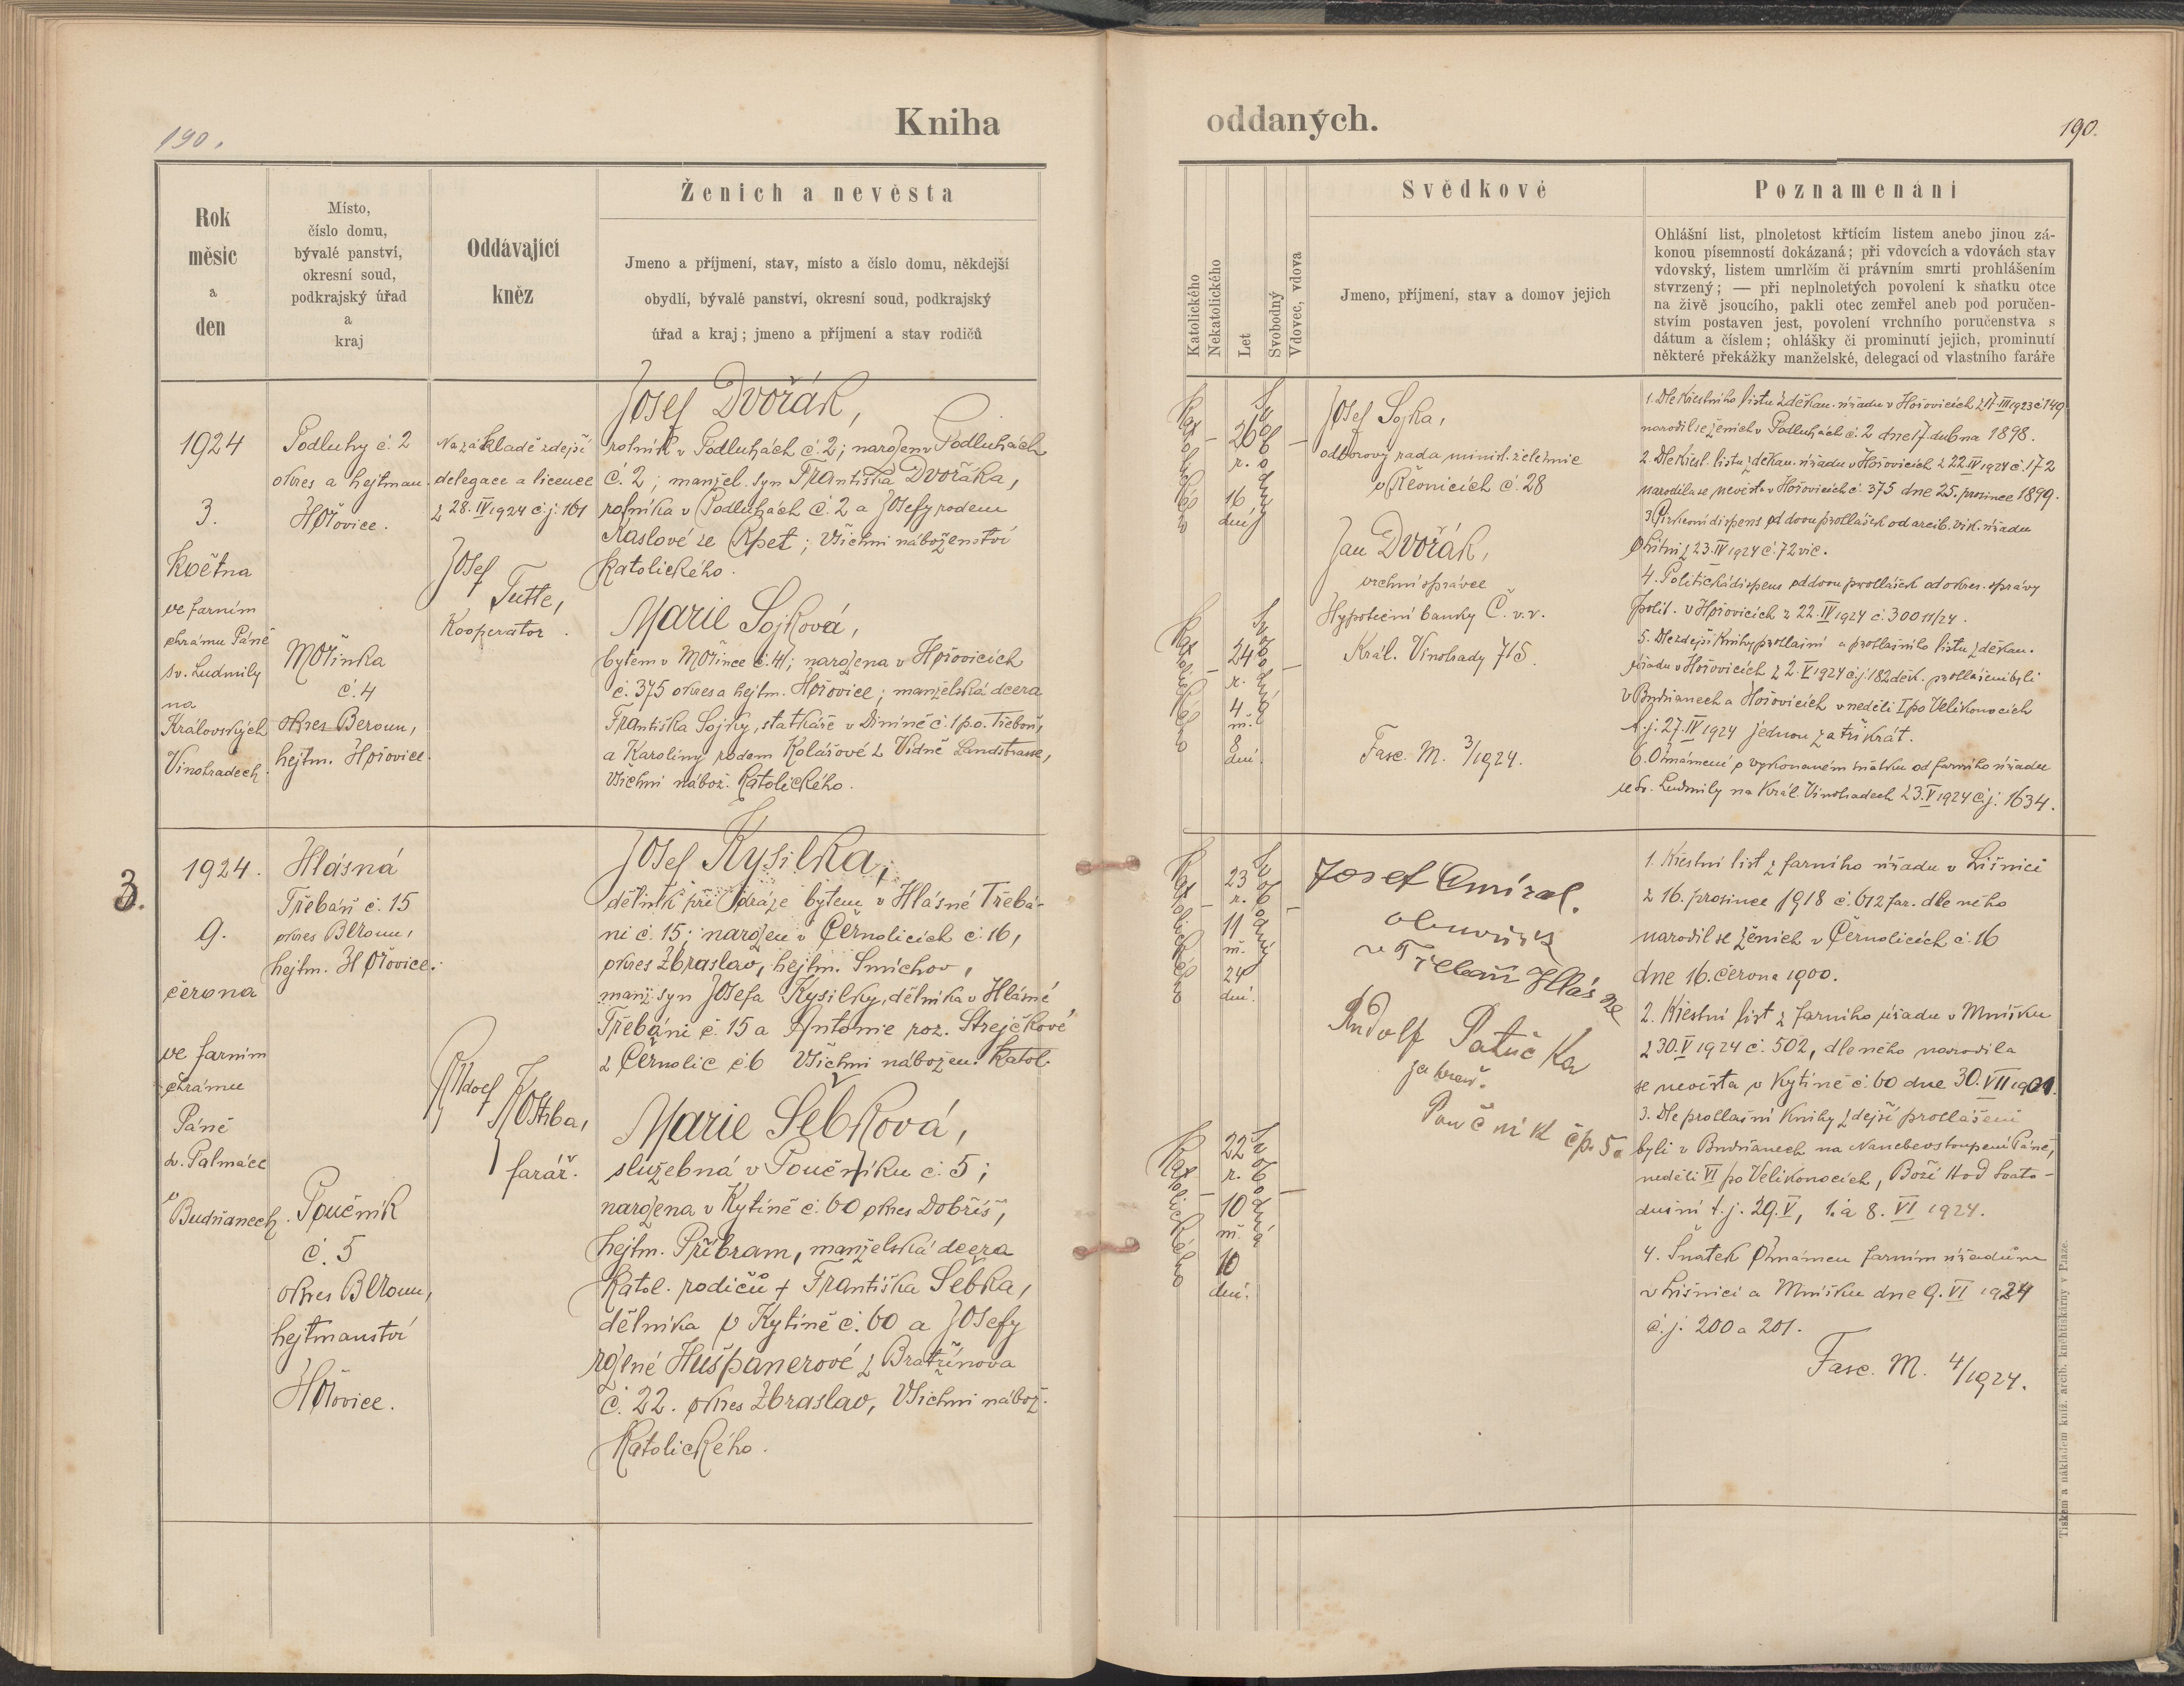 190.
Kniha
oddaných.
190.
Rok
měsíc
a
den
Místo,
číslo domu,
bývalé panství,
okresní soud,
podkrajský úřad
a
kraj
Oddávající
kněz
Ženich a nevěsta
Jmeno a příjmení, stav, místo a číslo domu, někdejší
obydlí, bývalé panství, okresní soud, podkrajský
úřad a kraj; jmeno a příjmení a stav rodičů
Katolického
Nekatolického
Let
Svobodný
Vdovec, vdova
Svědkové
Jmeno, příjmení, stav a domov jejich
Poznamenání
Ohlášní list, plnoletost křtícím listem anebo jinou zá-
konou písemností dokázaná; při vdovcích a vdovách stav
vdovský, listem umrlčím či právním smrti prohlášením
stvrzený; — při neplnoletých povolení k sňatku otce
na živě jsoucího, pakli otec zemřel aneb pod poručen-
stvím postaven jest, povolení vrchního poručenstva s
dátum a číslem; ohlášky či prominutí jejich, prominutí
některé překážky manželské, delegací od vlastního faráře
1924
3.
května
ve farním
chrámu Páně
sv. Ludmily
na
Královských
Vinohradech.
Podluhy č. 2
okres a hejtman.
Hořovice.
Mořinka
č. 4
okres Beroun,
hejtm. Hořovice.
Na základě zdejší
delegace a licence
z 28. IV 1924 č.j. 161
Josef
Tuttle,
Kooperator.
Josef Dvořák,
rolník v Podluhách č. 2; narozen v Podluhách
č. 2; manžel. syn Františka Dvořáka,
rolníka v Podluhách č. 2 a Josefy rodem
Kaslové ze Kpet; Všichni náboženství
katolického.
Marie Sojková,
bytem v Mořince č. 4; narozena v Hořovicích
č. 375 okres a hejtm. Hořovice; manželská dcera
Františka Sojky, statkáře v Diníně č. 1 p.o. Třeboň,
a Karolíny rodem Kolářové z Vídně Landstrasse,
Všichni nábož. Katolického.
Katolického
—
26 r.
16 dní
Svobodný
—
Katolického
—
24 r.
4 m.
8 dní.
Svobodná
—
Josef Sojka,
odborový rada minist. železnic
v Řevnicích č. 28
Jan Dvořák,
vrchní správce
Hypoteční banky Č. v. v.
Král. Vinohrady 715.
Fasc. M. 3/1924.
1. Dle křestního listu z děkan. úřadu v Hořovicích z 17. III 1923 č 149
narodil se ženich v Podluhách č. 2 dne 17. dubna 1898.
2. Dle křest. listu z děkan. úřadu v Hořovicích z 22. IV 1924 č. 172
narodila se nevěsta v Hořovicích č. 375 dne 25. prosince 1899.
3. Církevní dispens od dvou prohlášek od arcib. vik. úřadu
z 23. IV 1924 č. 72 vic.
4. Politická dispens od dvou prohlášek od okres. správy
polit. v Hořovicích z 22. IV 1924 č. 30011/24.
5. Dle zdejší knihy prohlášní a prohlášního listu z děkan.
úřadu v Hořovicích z 2. V 1924 č.j. 182 děk. prohlášeni byli
v Budňanech a Hořovicích v neděli I po Velikonocích
t.j. 27. IV 1924 jednou za třikrát.
6. Oznámení o vykonaném sňatku od farního úřadu
u sv. Ludmily na Král. Vinohradech z 3. V 1924 č.j. 1634.
3.
1924.
9.
června
ve farním
chrámu
Páně
sv. Palmácc
v Budňanech.
Hlásná
Třebáň č. 15
okres Beroun,
hejtm. Hořovice.
Poučník
č. 5
okres Beroun,
hejtmanství
Hořovice.
Rudolf
Kostiba,
farář.
Josef Kysilka,
dělník při dráze bytem v Hlásné Třebá-
ni č. 15; narozen v Černolicích č. 16,
okres Zbraslav, hejtm. Smíchov,
manž. syn Josefa Kysilky, dělníka v Hlásné
Třebáni č. 15 a Antonie roz. Strejčkové
z Černolic č. 6 Všichni nábožen. Katol.
Marie Šebková,
služebná v Poučníku č. 5;
narozena v Kytíně č. 60 okres Dobříš,
hejtm. Příbram, manželská dcera
katol. rodičů † Františka Šebka,
dělníka v Kytíně č. 60 a Josefy
rozené Hušpanerové z Bratřínova
č. 22. okres Zbraslav, Všichni nábož.
Katolického.
Katolického
—
23 r.
11 m.
24 dní.
Svobodný
—
Katolického
—
22 r.
10 m.
10 dní.
Svobodná
—
Josef Cmíral.
obuvník
v Třebáni Hlásné
Rudolf Patučka
zahrad.
Poučník čp. 5.
1. Křestní list z farního úřadu v Líšnici
z 16. prosince 1918 č. 612 far. dle něho
narodil se ženich v Černolicích č. 16
dne 16. června 1900.
2. Křestní list z farního úřadu v Mníšku
z 30. V 1924 č. 502, dle něho narodila
se nevěsta v Kytíně č. 60 dne 30. VII 1901.
3. Dle prohlašní knihy zdejší prohlášeni
byli v Budňanech na Nanebevstoupení Páně,
neděli VI po Velikonocích, Boží Hod Svato-
dušní t.j. 29. V, 1. a 8. VI 1924.
4. Sňatek oznámen farním úřadům
v Líšnici a Mníšku dne 9. VI 1924
č.j. 200 a 201.
Fasc. M. 4/1924.
Tiskem a nákladem kníž. arcib. knihtiskárny v Praze.